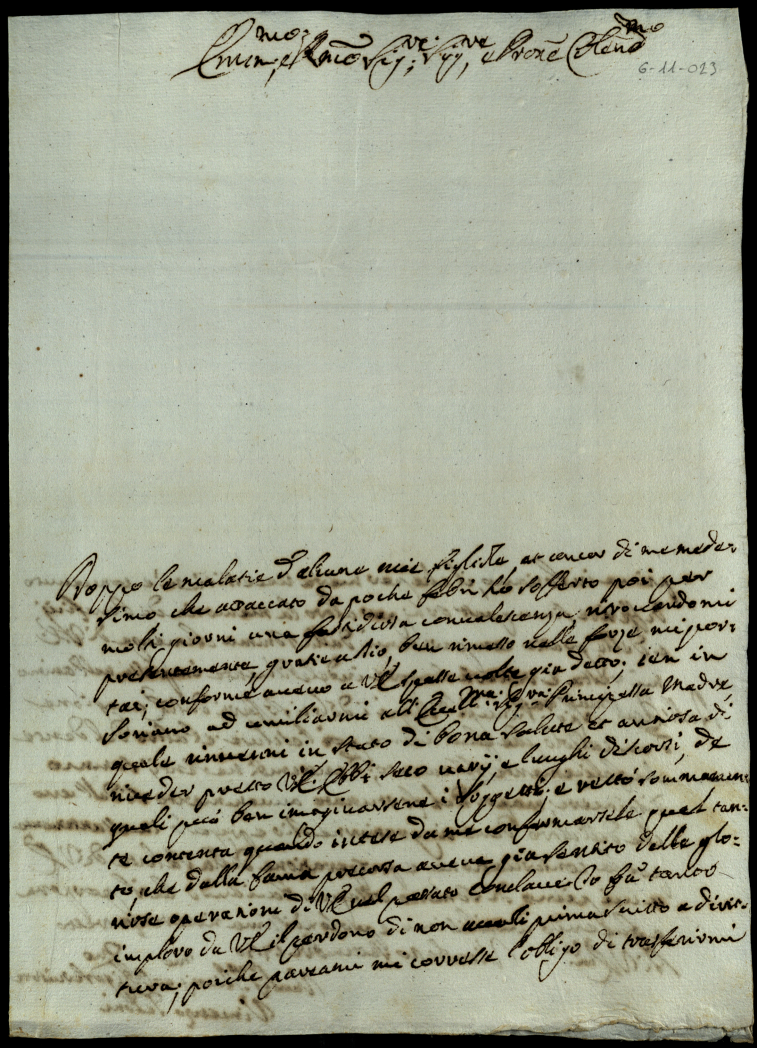 Emin.mo e R.mo Sig.re, Sig.re, e Prone Colend.mo
6-11-023
Doppo le malatie d'alcune mie figliole, et ancor di me mede-
simo che attaccato da poche febri hò sofferto poi per
molti giorni una fastidiosa convalescenza, ritrovandomi
presentemente, gratie a Dio, ben rimesso nelle forze mi por-
tai, conforme avevo a VE spesse volte già detto, ieri in
Soriano ad umiliarmi all' Eccell.ma Sig.ra Principessa Madre,
quale rinvenni in stato di bona salute et anziosa di
riveder presto VE. Ebbi seco varij, e lunghi discorsi, de
quali può ben imaginarsene i soggetti; e restò sommamen-
te contenta quando intese da me confermarsele quel tan-
to, che dalla fama precorsa aveva già sentito delle glo-
riose operazioni di VE nel passato Conclave. Io frà tanto
imploro da VE il perdono di non averli prima scritto a diret-
tura, poiche pareami mi corresse l'obligo di trasferirmi